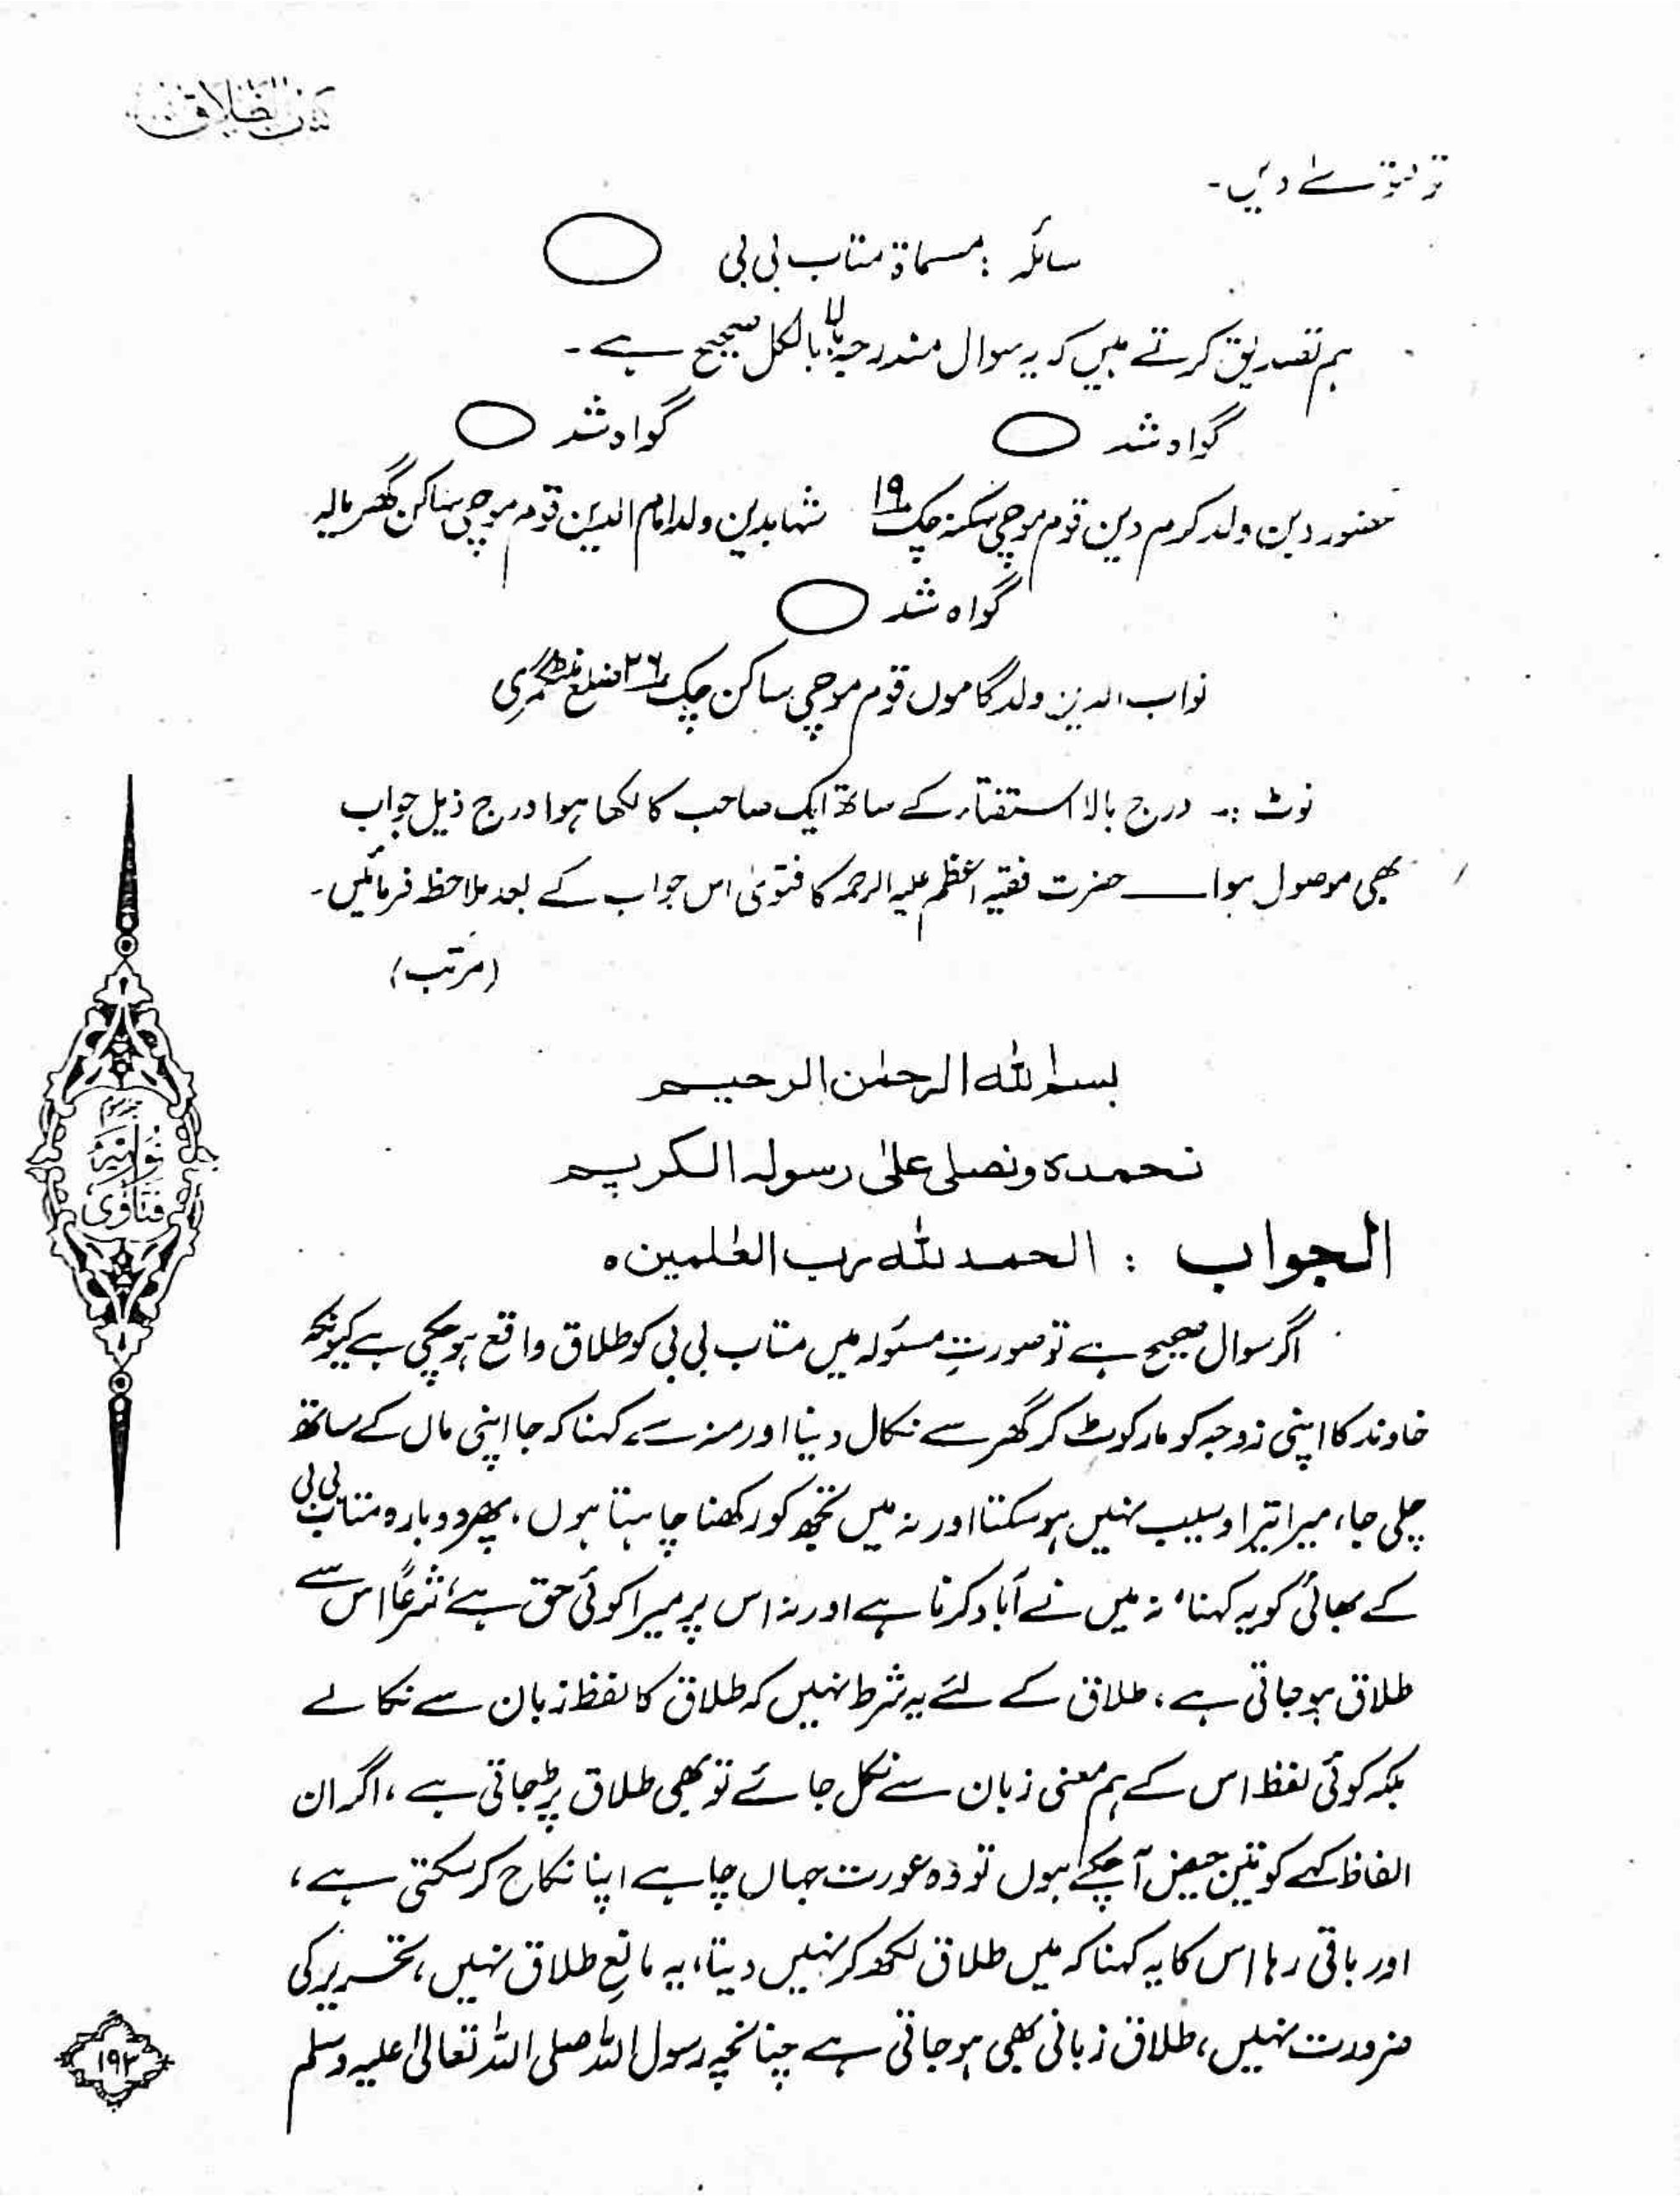 کتاب الطلاق
تو فتوٰے دیں۔
سائلہ : مسماۃ متاب بی بی
ہم تصدیق کرتے ہیں کہ یہ سوال مندرجہ بالا بالکل صحیح ہے۔
گواہ شد گواہ شد
دین ولد کرم دین قوم موچی سکنہ چک ۱۹ شہابدین ولد امام الدین قوم موچی ساکن گھرمالہ
گواہ شد
نواب الدین ولد گاموں قوم موچی ساکن چک ۲۶ ضلع منٹگمری
نوٹ :۔ درج بالا استفتاء کے ساتھ ایک صاحب کا لکھا ہوا درج ذیل جواب
بھی موصول ہوا ــــ حضرت فقیہ اعظم علیہ الرحمہ کا فتویٰ اس جواب کے بعد ملاحظہ فرمائیں۔
(مرتب)
بسم اللہ الرحمٰن الرحیم
نحمدہ ونصلی علیٰ رسولہ الکریم
الجواب : الحمد للہ رب العٰلمین ہ
اگر سوال صحیح ہے تو صورتِ مسئولہ میں متاب بی بی کو طلاق واقع ہو چکی ہے کیونکہ
خاوند کا اپنی زوجہ کو مار کوٹ کر گھر سے نکال دینا اور منہ سے کہنا کہ جا اپنی ماں کے ساتھ
چلی جا، میرا تیرا وسیب نہیں ہو سکتا اور نہ میں تجھ کو رکھنا چاہتا ہوں، پھر دوبارہ متاب بی بی
کے بھائی کو یہ کہنا، نہ میں نے آباد کرنا ہے اور نہ اس پر میرا کوئی حق ہے، شرعًا اس سے
طلاق ہو جاتی ہے، طلاق کے لئے یہ شرط نہیں کہ طلاق کا لفظ زبان سے نکالے
بلکہ کوئی لفظ اس کے ہم معنی زبان سے نکل جائے تو بھی طلاق پڑ جاتی ہے، اگر ان
الفاظ کہے کو تین حیض آ چکے ہوں تو وہ عورت جہاں چاہے اپنا نکاح کر سکتی ہے،
اور باقی رہا اس کا یہ کہنا کہ میں طلاق لکھ کر نہیں دیتا، یہ مانعِ طلاق نہیں، تحریر کی
ضرورت نہیں، طلاق زبانی بھی ہو جاتی ہے چنانچہ رسول اللہ صلی اللہ تعالیٰ علیہ وسلم
فتاوٰی نوریہ
۱۹۳